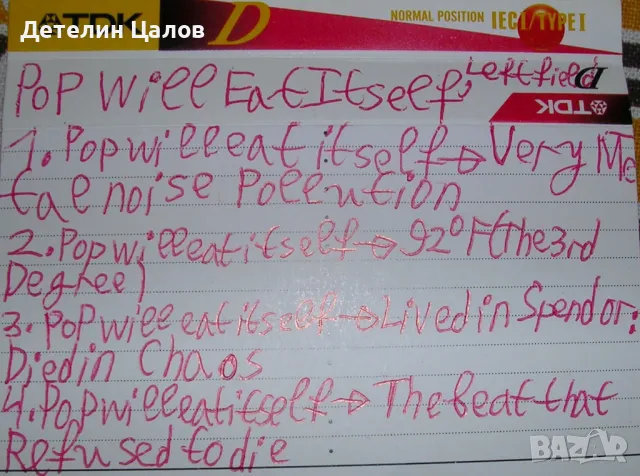 Детелин Цалов
TDK D NORMAL POSITION IEC I / TYPE I
Pop will Eat Itself, Leftfield
D TDK
1. Pop will eat itself → Very Me
tal noise Pollution
2. Pop will eat itself → 92°F (The 3rd
Degree)
3. Pop will eat itself → Lived in Spendor:
Died in Chaos
4. Pop will eat itself → The beat that
Refused to die
BAZAR